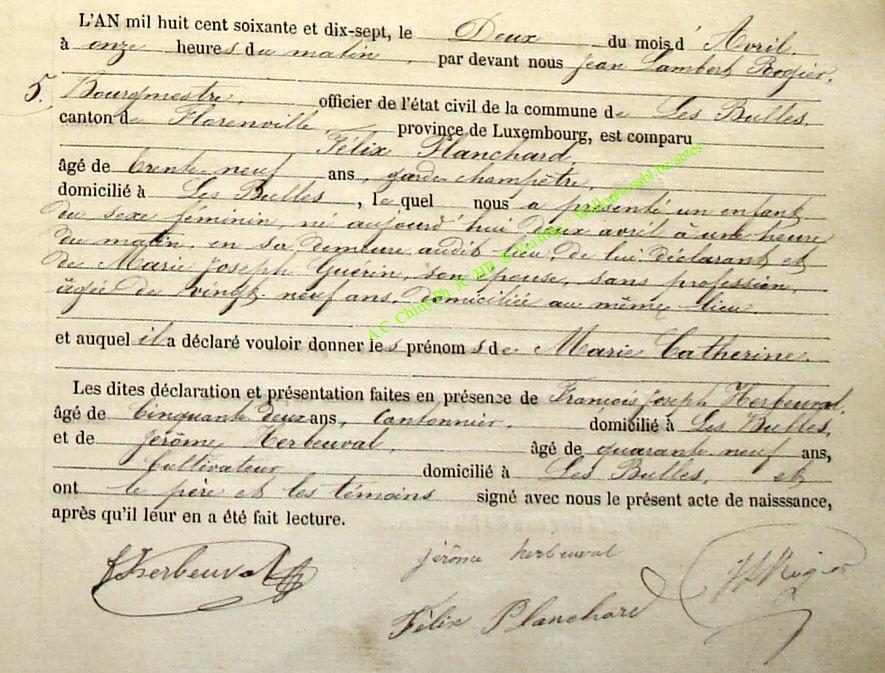 L'AN mil huit cent soixante et dix-sept, le Deux du mois d' Avril,
à onze heures du matin, par devant nous Jean Lambert Rogier,
5. Bourgmestre, officier de l'état civil de la commune de Les Bulles,
canton de Florenville, province de Luxembourg, est comparu
Félix Planchard,
âgé de trente neuf ans, garde champêtre,
domicilié à Les Bulles, lequel nous a présenté un enfant
du sexe féminin, né aujourd'hui deux avril à une heure
du matin, en sa demeure audit lieu, de lui déclarant, et
de Marie Joseph Guerin, son épouse, sans profession,
âgée de vingt-neuf ans, domiciliée au même lieu.
et auquel il a déclaré vouloir donner les prénoms de Marie Catherine.
Les dites déclaration et présentation faites en présence de François Joseph Herbeuval,
âgé de Cinquante deux ans, Cantonnier, domicilié à Les Bulles,
et de Jérôme Herbeuval, âgé de quarante neuf ans,
Cultivateur domicilié à Les Bulles, et
ont le père et les témoins signé avec nous le présent acte de naisssance,
après qu'il leur en a été fait lecture.
fJherbeuval jérôme herbeuval JLRogier
Félix Planchard